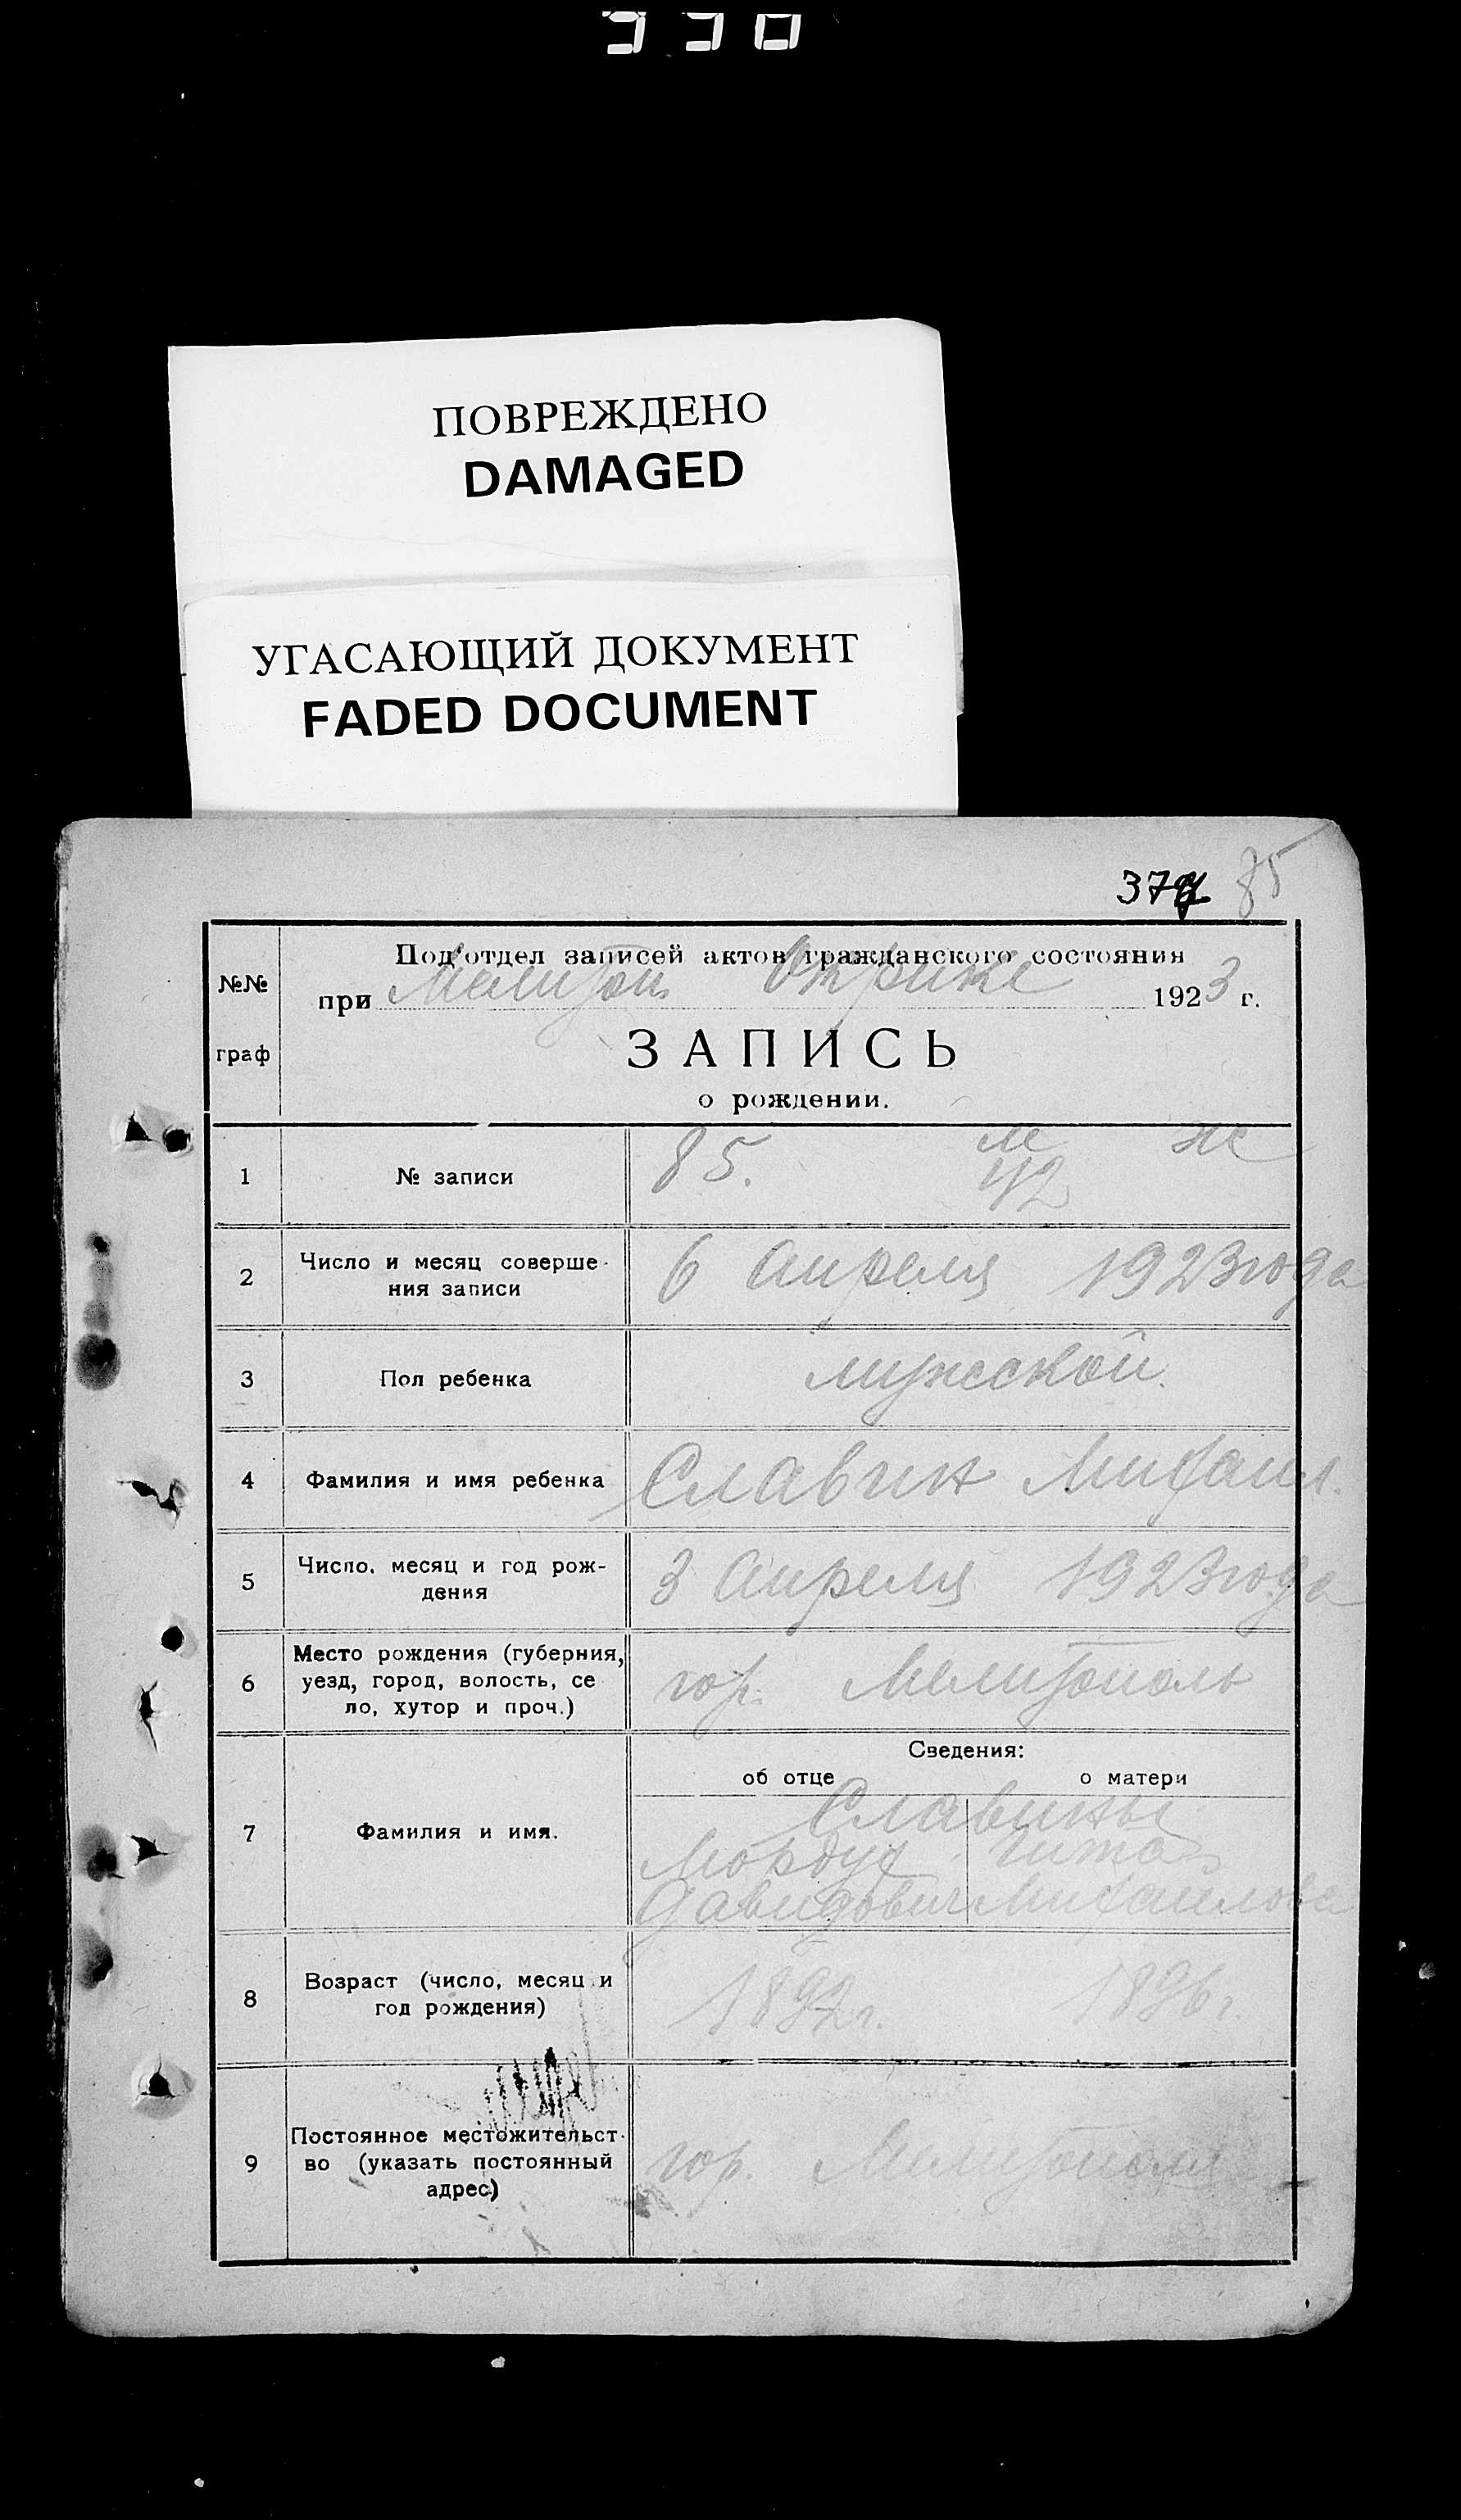 ПОВРЕЖДЕНО
DAMAGED
УГАСАЮЩИЙ ДОКУМЕНТ
FADED DOCUMENT
85
Под'отдел записей актов гражданского состояния
при Мелитоп. Окрике 1923 г.
№№
граф
ЗАПИСЬ
о рождении.
1 № записи 85. м ж
42
2 Число и месяц соверше-
ния записи 6 Апреля 1923 года
3 Пол ребенка мужской.
4 Фамилия и имя ребенка Славин Михаил.
5 Число, месяц и год рож-
дения 3 Апреля 1923 года
6 Место рождения (губерния,
уезд, город, волость, се
ло, хутор и проч.) гор. Мелитополь
Сведения:
об отце о матери
7 Фамилия и имя. Славины
Мордух Гита
Давидович Михайлова
8 Возраст (число, месяц и
год рождения) 1892 г. 1896 г.
9 Постоянное местожительст-
во (указать постоянный
адрес) гор. Мелитополь